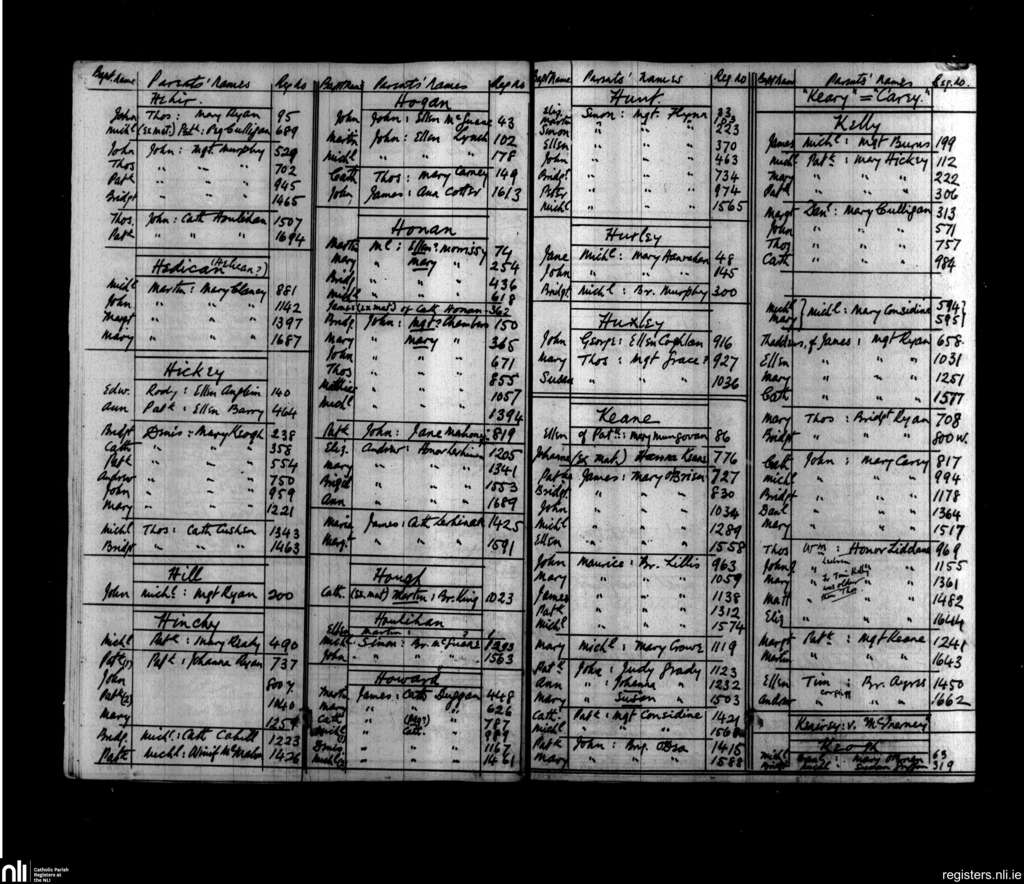 Bapt. name Parents' names Reg no
Hehir.
John Thos: Mary Ryan 95
Michl (ex mat) Patk: Peg Culligan 689
John John: Mgt Murphy 529
Thos " " " 702
Patk " " " 945
Bridgt " " " 1465
Thos John: Cath Houlihan 1507
Patk " " " 1694
Hedican (Helican?)
Michl Martin: Mary Clancy 881
John " " " 1142
Margt " " " 1397
Mary " " " 1687
Hickey
Edw. Rody: Ellen Anglin 140
Ann Patk: Ellen Barry 464
Bridgt Denis: Mary Keogh 238
Cath " " " 358
Patk " " " 554
Andrew " " " 750
John " " " 959
Mary " " " 1221
Michl Thos: Cath Cushen 1343
Bridgt " " " 1463
Hill
John Michl: Mgt Ryan 200
Hinchy
Michl Patk: Mary Healy 490
Patk Patk: Johanna Ryan 737
John
Patk 1040
Mary 1259
Bridg. Michl: Cath Cahill 1223
Patk Michl: Winif McMahon 1426
Bapt Name Parents' Names Reg no
Hogan
John John: Ellen McGuane 43
Martin John: Ellen Lynch 102
Michl " " " 178
Cath Thos: Mary Carney 149
John James: Ana Cotter 1613
Honan
Martin Ml: Ellen? Morrissy 74
Mary " Mary " 254
Bridg " " " 436
Michl " " " 618
James (ex mat) of Cath Honan 362
Bridg. John: Mgt? Chambers 150
Mary " Mary " 365
John " " " 671
Thos " " " 855
Mathew " " " 1057
Michl " " " 1394
Patk John: Jane Mahony 819
Eliz. Andrew: Honor 1205
Mary " " " 1341
Brigid " " " 1553
Ann " " " 1689
Maria James: Cath 1425
Margt " " " 1591
Hough
Cath (ex mat) Martin: Br. King 1023
Houlihan
Ellen Martin:
Michl Simon: Br. McGuane
John " " " 1563
Howard
Martin James: Cath Duggan 448
Mary " " " 626
Cath " (Mgt) " 787
Michl " Cath. " 989
Denis " " " 1167
Michl " " " 1461
Bapt Name Parents' names Reg no
Hunt.
Eliz. Simon: Mgt. Flynn 33
Martin " " 183
Simon " " 223
Ellen " " 370
John " " 463
Bridgt " " 734
Peter " " 974
Michl " " 1565
Hurley
Jane Michl: Mary Hanrahan 48
John " " " 145
Bridgt Michl: Br. Murphy 300
Huxley
John George: Ellen Coghlan 916
Mary Thos: Mgt Grace? 927
Susan " " " 1036
Keane
Ellen of Patk: Mary Mungovan 86
Johanna (ex mat.) Hanna Keane 776
Patk James: Mary O'Brien 727
Bridgt. " " " 830
John " " " 1034
Michl " " " 1289
Ellen " " " 1558
John Maurice: Br. Lillis 963
Mary " " " 1059
James " " " 1138
Patk " " " 1312
Michl " " " 1574
Mary Michl: Mary Crowe 1119
Patk John: Judy Grady 1123
Ann " : Johanna " 1232
Mary " Susan " 1503
Cath. Patk: Mgt Considine 1421
Michl " " "
Patk John: Brg. O'Dea 1415
Mary " " " 1588
Bapt Name Parents' names Reg. no.
"Keary" = "Carey."
Kelly
James Michl: Mgt Burns 199
Michl Patk: Mary Hickey 112
Mary " " " 222
Patk " " " 306
Margt Danl: Mary Culligan 313
John " " " 571
Thos " " " 757
Cath " " " 984
Michl } Michl: Mary Considine 594 }
Mary } 595 }
Thaddeus, of James: Mgt Ryan 658
Ellen " " " 1031
Mary " " " 1251
Cath " " " 1577
Mary Thos: Bridgt Ryan 708
Bridgt " " " 800 w.
Cath John: Mary Carey 817
Michl " " " 994
Bridgt " " " 1178
Danl " " " 1364
Mary " " " 1517
Thos Wm: Honor Liddane 969
John " " 1155
Mary " " 1361
Matt " " 1482
Eliz " " 1644
Margt Patk: Mgt Keane 1241
Martin " " " 1643
Ellen Tim: Br. Ayres 1450
Andrew " " " 1662
Kearsey: v. McInerney
Keogh
Michl 63
Bridgt 319
nli
Catholic Parish
Registers at
the NLI
registers.nli.ie